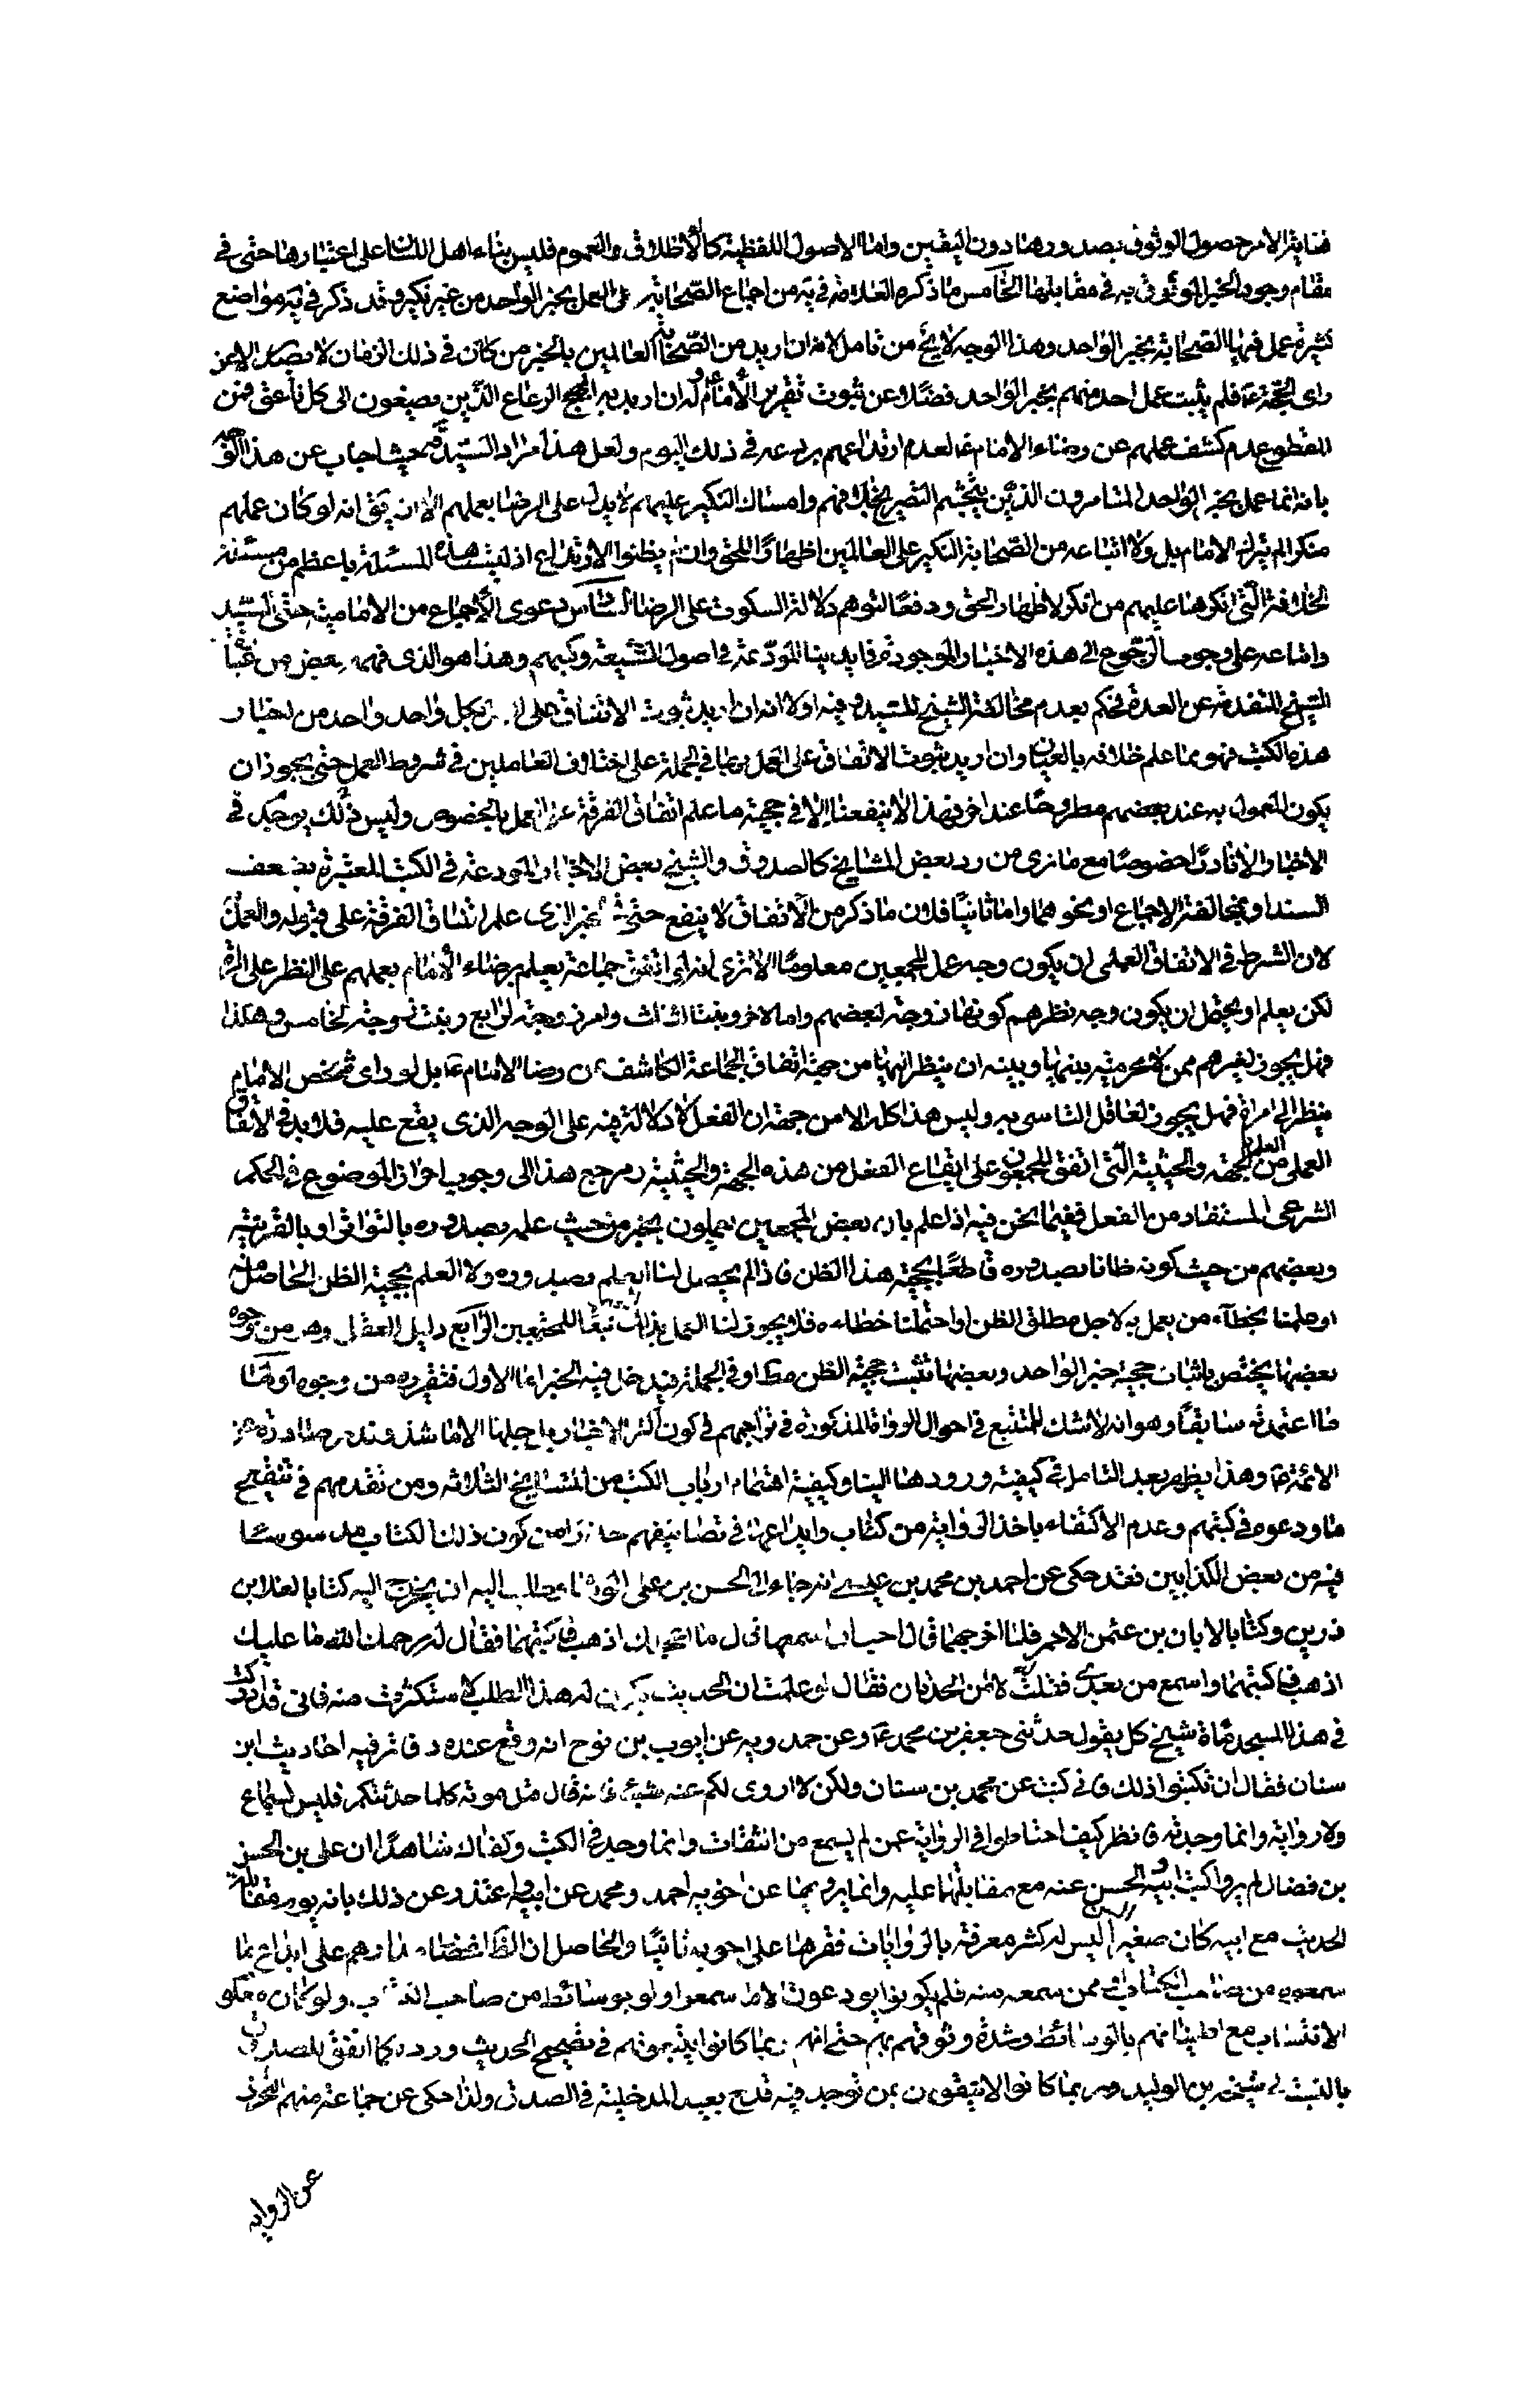 فغاية الامر حصول الوثوق بصدورها دون اليقين واما الاصول اللفظية كالاطلاق والعموم فليس بناء اهل اللسان على اعتبارها حتى في
مقام وجود الخبر الموثوق به في مقابلها الخامس ما ذكره العلامة في ية من اجماع الصحابة على العمل بخبر الواحد من غير نكير وقد ذكر في ية مواضع
كثيرة عمل فيها الصحابة بخبر الواحد وهذا الوجه لا يخ من تامل لانه ان اريد من الصحابة العاملين بالخبر من كان في ذلك الزمان لا يصدر الا عن
راى الحجة ع فلم يثبت عمل احد منهم بخبر الواحد فضلا عن ثبوت تقرير الامام ع له وان اريد به الهمج الرعاع الذين يصيغون الى كل ناعق فمن
المقطوع عدم كشف عملهم عن رضاء الامام ع لعدم ارتداعهم بردعه في ذلك اليوم ولعل هذا مراد السيد قده حيث اجاب عن هذا الوجه
بانه انما عمل بخبر الواحد المتامرون الذين يتجشم التصريح بخلافهم وامساك النكير عليهم لا يدل على الرضا بعملهم الا ان يق انه لو كان عملهم
منكرا لم يترك الامام بل ولا اتباعه من الصحابة النكير على العاملين اظهارا للحق وان لم يظنوا الارتداع اذ ليست هذه المسئلة باعظم من مسئلة
الخلافة التي انكرها عليهم من انكر لاظهار الحق ودفعا لتوهم دلالة السكوت على الرضا السادس دعوى الاجماع من الامامية حتى السيد
واتباعه على وجوب الرجوع الى هذه الاخبار الموجودة في ايدينا المودعة في اصول الشيعة وكتبهم وهذا هو الذى فهمه بعض من عبارة
الشيخ المتقدمة عن العدة فحكم بعدم مخالفة الشيخ للسيد وفيه اولا انه ان اريد ثبوت الاتفاق على العمل بكل واحد واحد من اخبار
هذه الكتب فهو مما علم خلافه بالعيان وان اريد ثبوت الاتفاق على العمل بها في الجملة على اختلاف العاملين في شروط العمل حتى يجوز ان
يكون المعمول به عند بعضهم مطروحا عند اخر فهذا لا ينفعنا الا في حجية ما علم اتفاق الفرقة على العمل بالخصوص وليس ذلك يوجد في
الاخبار الا نادرا خصوصا مع ما نرى من رد بعض المشايخ كالصدوق والشيخ بعض الاخبار المودعة في الكتب المعتبرة بضعف
السند او بمخالفة الاجماع او نحوهما واما ثانيا فلان ما ذكر من الاتفاق لا ينفع حتى في الخبر الذى علم اتفاق الفرقة على قبوله والعمل
لان الشرط في الاتفاق العملى ان يكون وجه عمل المجمعين معلوما الا ترى انه لو اتفق جماعة يعلم برضاء الامام بعملهم على النظر على امراة
لكن يعلم او يحتمل ان يكون وجه نظرهم كونها زوجة لبعضهم واما لاخر وبنتا لثالث وام زوجة لرابع وبنت زوجة لخامس وهكذا
فهل يجوز لغيرهم ممن لا محرمية بينها وبينه ان ينظر اليها من جهة اتفاق الجماعة الكاشف عن رضا الامام ع بل لو راى شخص الامام
ينظر الى امراة فهل يجوز لعاقل التاسى به وليس هذا كله الا من جهة ان الفعل لا دلالة فيه على الوجه الذى يقع عليه فلا بد في الاتفاق
العملى من العلم بالجهة والحيثية التي اتفق المجمعون على ايقاع الفعل من هذه الجهة والحيثية ومرجع هذا الى وجوب احراز الموضوع في الحكم
الشرعى المستفاد من الفعل ففيما نحن فيه اذا علم بان بعض المجمعين يعملون بخبر من حيث علمه بصدوره بالتواتر او بالقرينة
وبعضهم من حيث كونه ظانا بصدوره قاطعا بحجية هذا الظن فاذا لم يحصل لنا العلم بصدوره ولا العلم بحجية الظن الحاصل منه
او علمنا بخطاء من يعمل به لاجل مطلق الظن او احتملنا خطاءه فلا يجوز لنا العمل بذلك تبعا للمجمعين الرابع دليل العقل وهو من وجوه
بعضها يختص باثبات حجية خبر الواحد وبعضها تثبت حجية الظن مط او في الجملة فيدخل فيه الخبر اما الاول فتقريره من وجوه اولها
ما اعتمدته سابقا وهو انه لا شك للمتتبع في احوال الرواة المذكورة في تراجمهم في كون اكثر الاخبار بل جلها الا ما شذ وندر صادرة عن
الائمة ع وهذا يظهر بعد التامل في كيفية ورودها الينا وكيفية اهتمام ارباب الكتب من المشايخ الثلاثة ومن تقدمهم في تنقيح
ما ودعوه في كتبهم وعدم الاكتفاء باخذ الرواية من كتاب وايداعها في تصانيفهم حذرا من كون ذلك الكتاب مدسوسا
فيه من بعض الكذابين فقد حكى عن احمد بن محمد بن عيسى انه جاء الى الحسن بن على الوشاء وطلب اليه ان يخرج اليه كتابا لعلاء بن
رزين وكتابا لابان بن عثمن الاحمر فلما اخرجهما قال احب ان اسمعها قال ما اعجلك اذهب فاكتبهما فقال له رحمك الله ما عليك
اذهب فاكتبهما واسمع من بعدى فقلت لا امن الحدثان فقال لو علمت ان الحديث يكون له هذا الطلب لاستكثرت منه فانى قد ادركت
في هذا المسجد مأة شيخ كل يقول حدثنى جعفر بن محمد ع وعن حمدويه عن ايوب بن نوح انه وقع عنده دفاتر فيه احاديث ابن
سنان فقال ان تكتبوا ذلك فانى كتبت عن محمد بن سنان ولكن لا اروى لكم عنه شيئا فانه قال قبل موته كلما حدثتكم فليس بسماع
ولا رواية وانما وجدته فانظر كيف احتاطوا في الرواية عمن لم يسمع من الثقات وانما وجد في الكتب وكفاك شاهدا ان على بن الحسن
بن فضال لم يرو كتب ابيه الحسن عنه مع مقابلتها عليه وانما يرويها عن اخويه احمد ومحمد عن ابيه واعتذر عن ذلك بانه يوم مقابلة
الحديث مع ابيه كان صغير السن ليس له كثير معرفة بالروايات فقرءها على اخويه ثانيا والحاصل ان الظاهر انحصار مدارهم على ايداع ما
سمعوه من صاحب الكتاب او ممن سمعه منه فلم يكونوا يودعون الا ما سمعوا ولو بوسائط من صاحب الكتاب ولو كان معلوم
الانتساب مع اطمينانهم بالوسائط وشدة وثوقهم بهم حتى انهم ربما كانوا يتبعونهم في تصحيح الحديث ورده كما اتفق للصدوق
بالنسبة لى شيخه بن الوليد وربما كانوا لا يثقون بمن توجد فيه قدح بعيد المدخلية في الصدق ولذا حكى عن جماعة منهم التحرز
عن الرواية